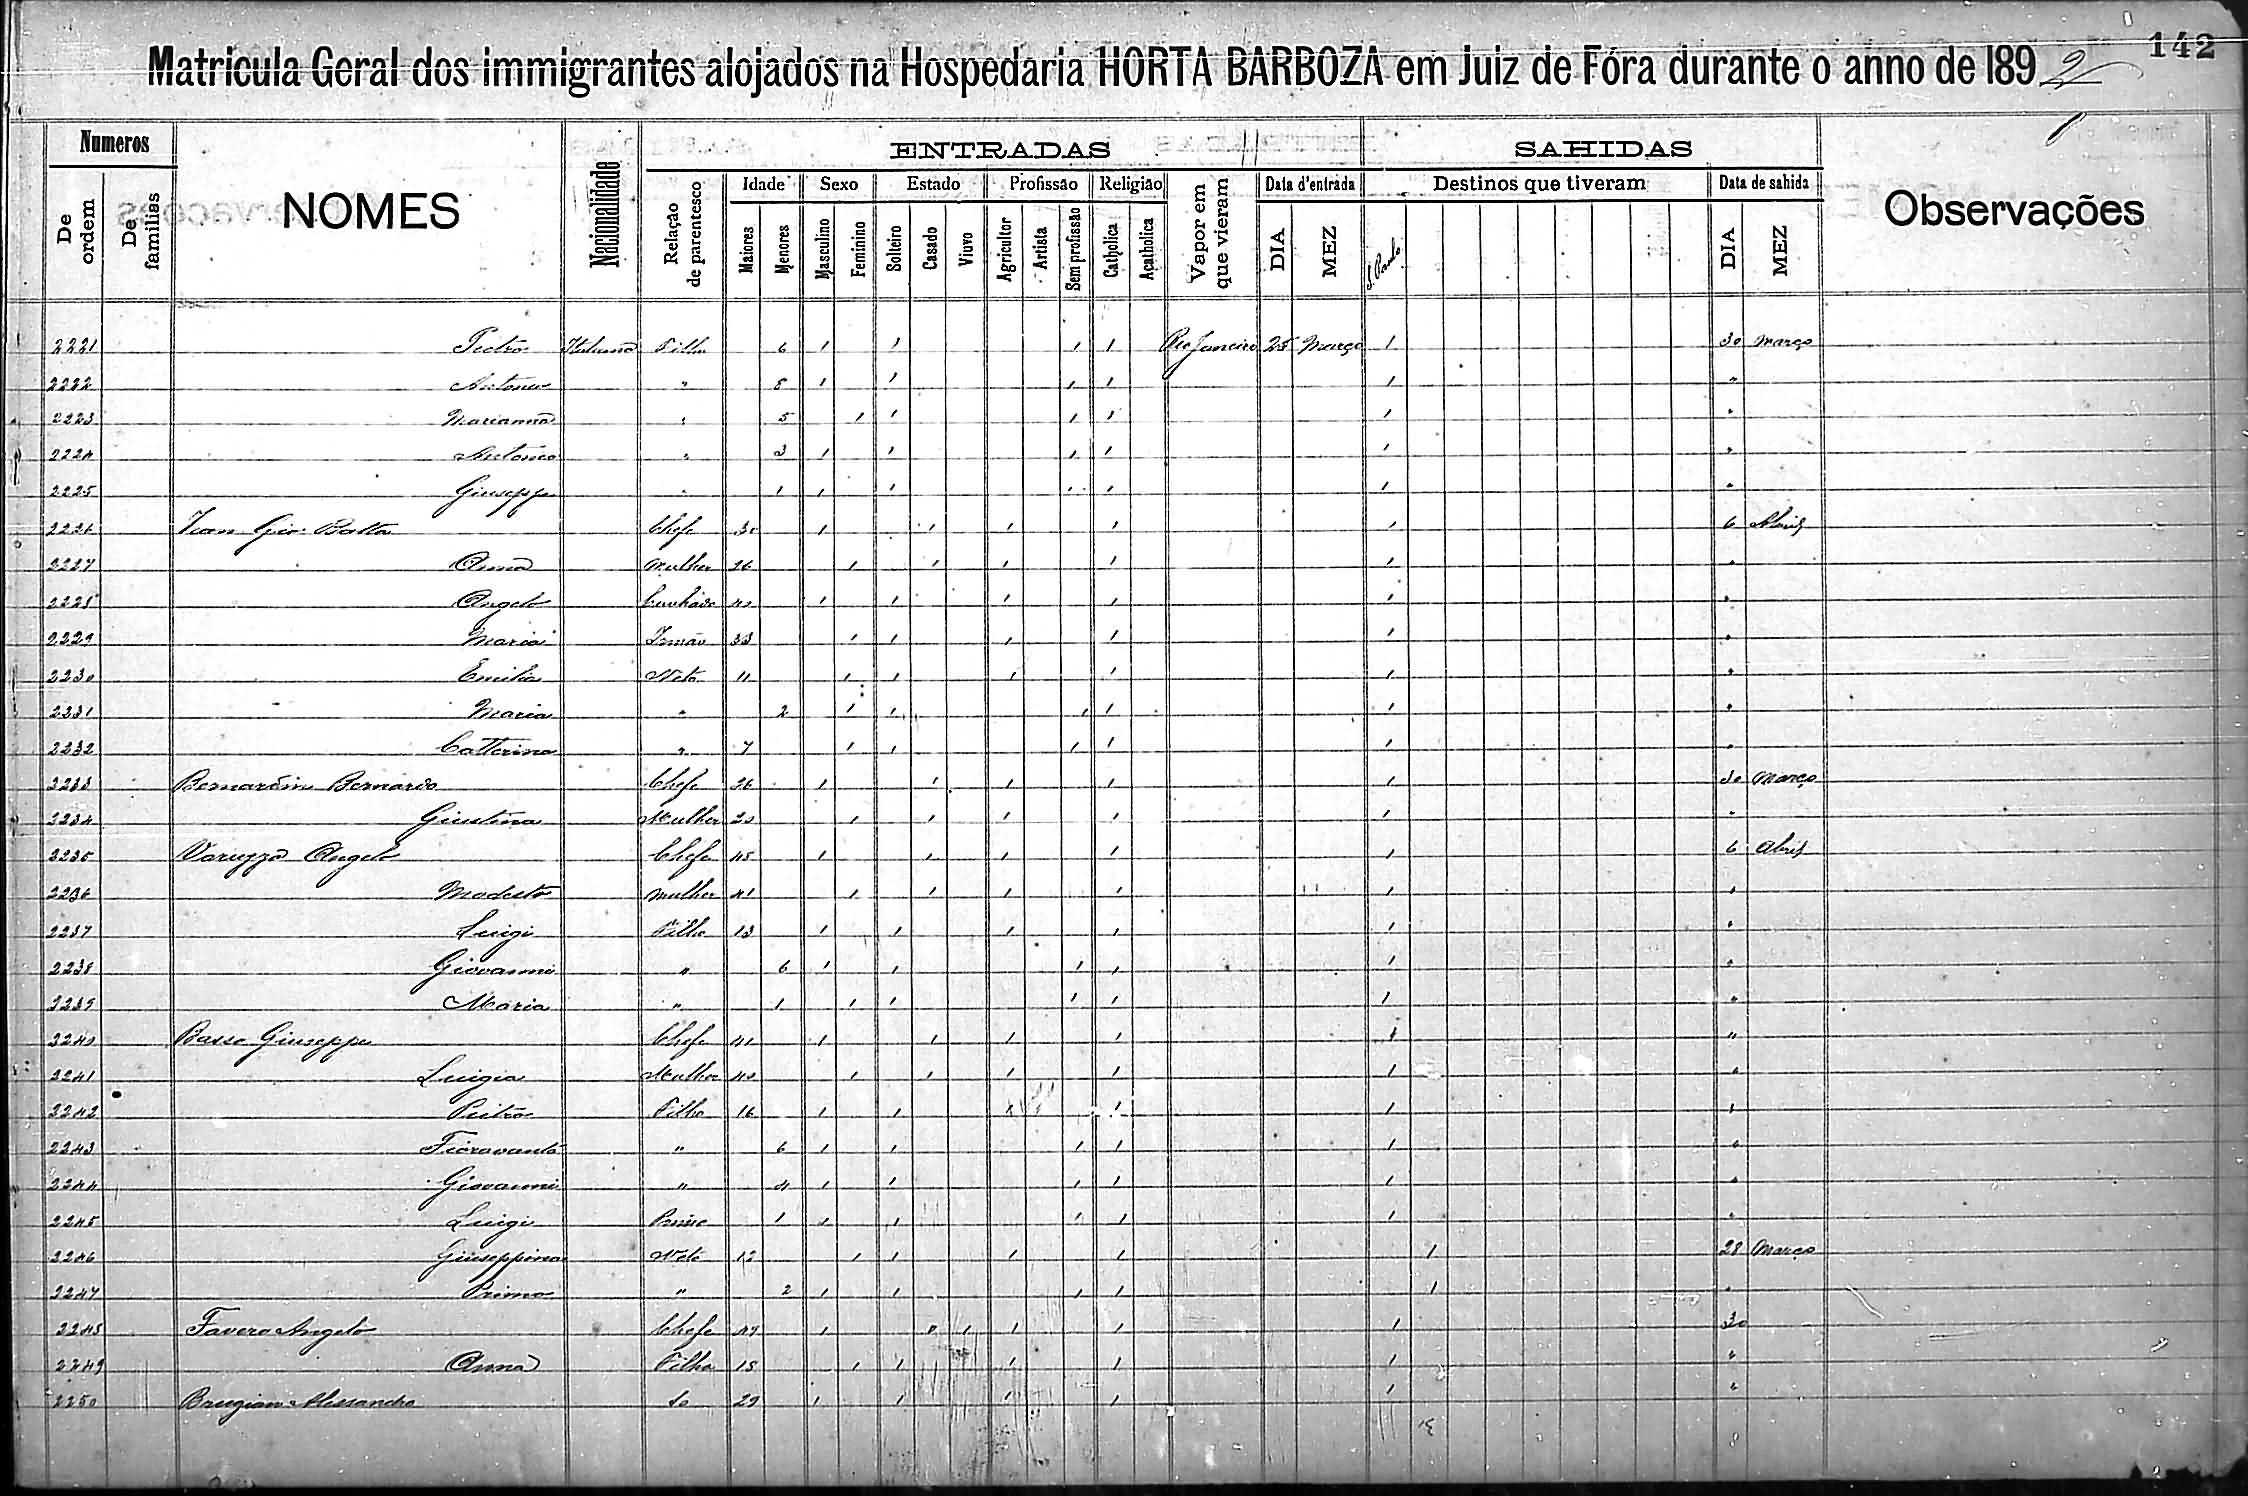 142
Matricula Geral dos immigrantes alojados na Hospedaria HORTA BARBOZA em Juiz de Fóra durante o anno de 1892
Numeros
De ordem
De familias
NOMES
Nacionalidade
ENTRADAS
Relação de parentesco
Idade
Maiores
Menores
Sexo
Masculino
Feminino
Estado
Solteiro
Casado
Viuvo
Profissão
Agricultor
Artista
Sem profissão
Religião
Catholica
Acatholica
Vapor em que vieram
Data d'entrada
DIA
MEZ
SAHIDAS
Destinos que tiveram
S. Paulo
Data de sahida
DIA
MEZ
Observações
2221 Pietro Italiana Filho 6 1 1 1 1 Rio Janeiro 25 Março 1 30 Março
2222 Antonio " 8 1 1 1 1 1 "
2223 Marianna " 5 1 1 1 1 1 "
2224 Antonio " 3 1 1 1 1 1 "
2225 Giuseppe " 1 1 1 1 1 1 "
2226 Gio: Batta Chefe 30 1 1 1 1 1 6 Abril
2227 Anna Mulher 26 1 1 1 1 1 "
2228 Angelo Cunhado 40 1 1 1 1 1 "
2229 Maria Irmão 33 1 1 1 1 1 "
2230 Emilia Neta 11 1 1 1 1 1 "
2231 Maria " 2 1 1 1 1 1 "
2232 Catterina " 7 1 1 1 1 1 "
2233 Bernardin Bernardo Chefe 26 1 1 1 1 1 30 Março
2234 Giustina Mulher 20 1 1 1 1 1 "
2235 Varuzza Angelo Chefe 45 1 1 1 1 1 6 Abril
2236 Modesta Mulher 41 1 1 1 1 1 "
2237 Luigi Filho 13 1 1 1 1 1 "
2238 Giovanni " 6 1 1 1 1 1 "
2239 Maria " 1 1 1 1 1 1 "
2240 Basso Giuseppe Chefe 41 1 1 1 1 1 "
2241 Luigia Mulher 40 1 1 1 1 1 "
2242 Pietro Filho 16 1 1 1 1 1 "
2243 Fioravante " 6 1 1 1 1 1 "
2244 Giovanni " 4 1 1 1 1 1 "
2245 Luigi 1 1 1 1 1 1 "
2246 Giuseppina Neto 12 1 1 1 1 1 28 Março
2247 Primo " 2 1 1 1 1 1 "
2248 Favero Angelo Chefe 49 1 1 1 1 1 30
2249 Anna Filha 18 1 1 1 1 1 "
2250 Alessandro So 29 1 1 1 1 1 "